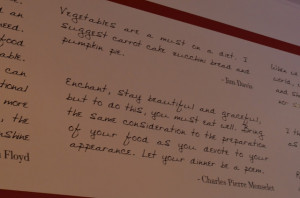 Vegetables are a must on a diet. I
suggest carrot cake, zucchini bread and
pumpkin pie.
- Jim Davis
Enchant, stay beautiful and graceful,
but to do this, you must eat well. Bring
the same consideration to the preparation
of your food as you devote to your
appearance. Let your dinner be a poem.
- Charles Pierre Monselet
an
need.
food
able.
can
tional
more
, the
nshine
Floyd